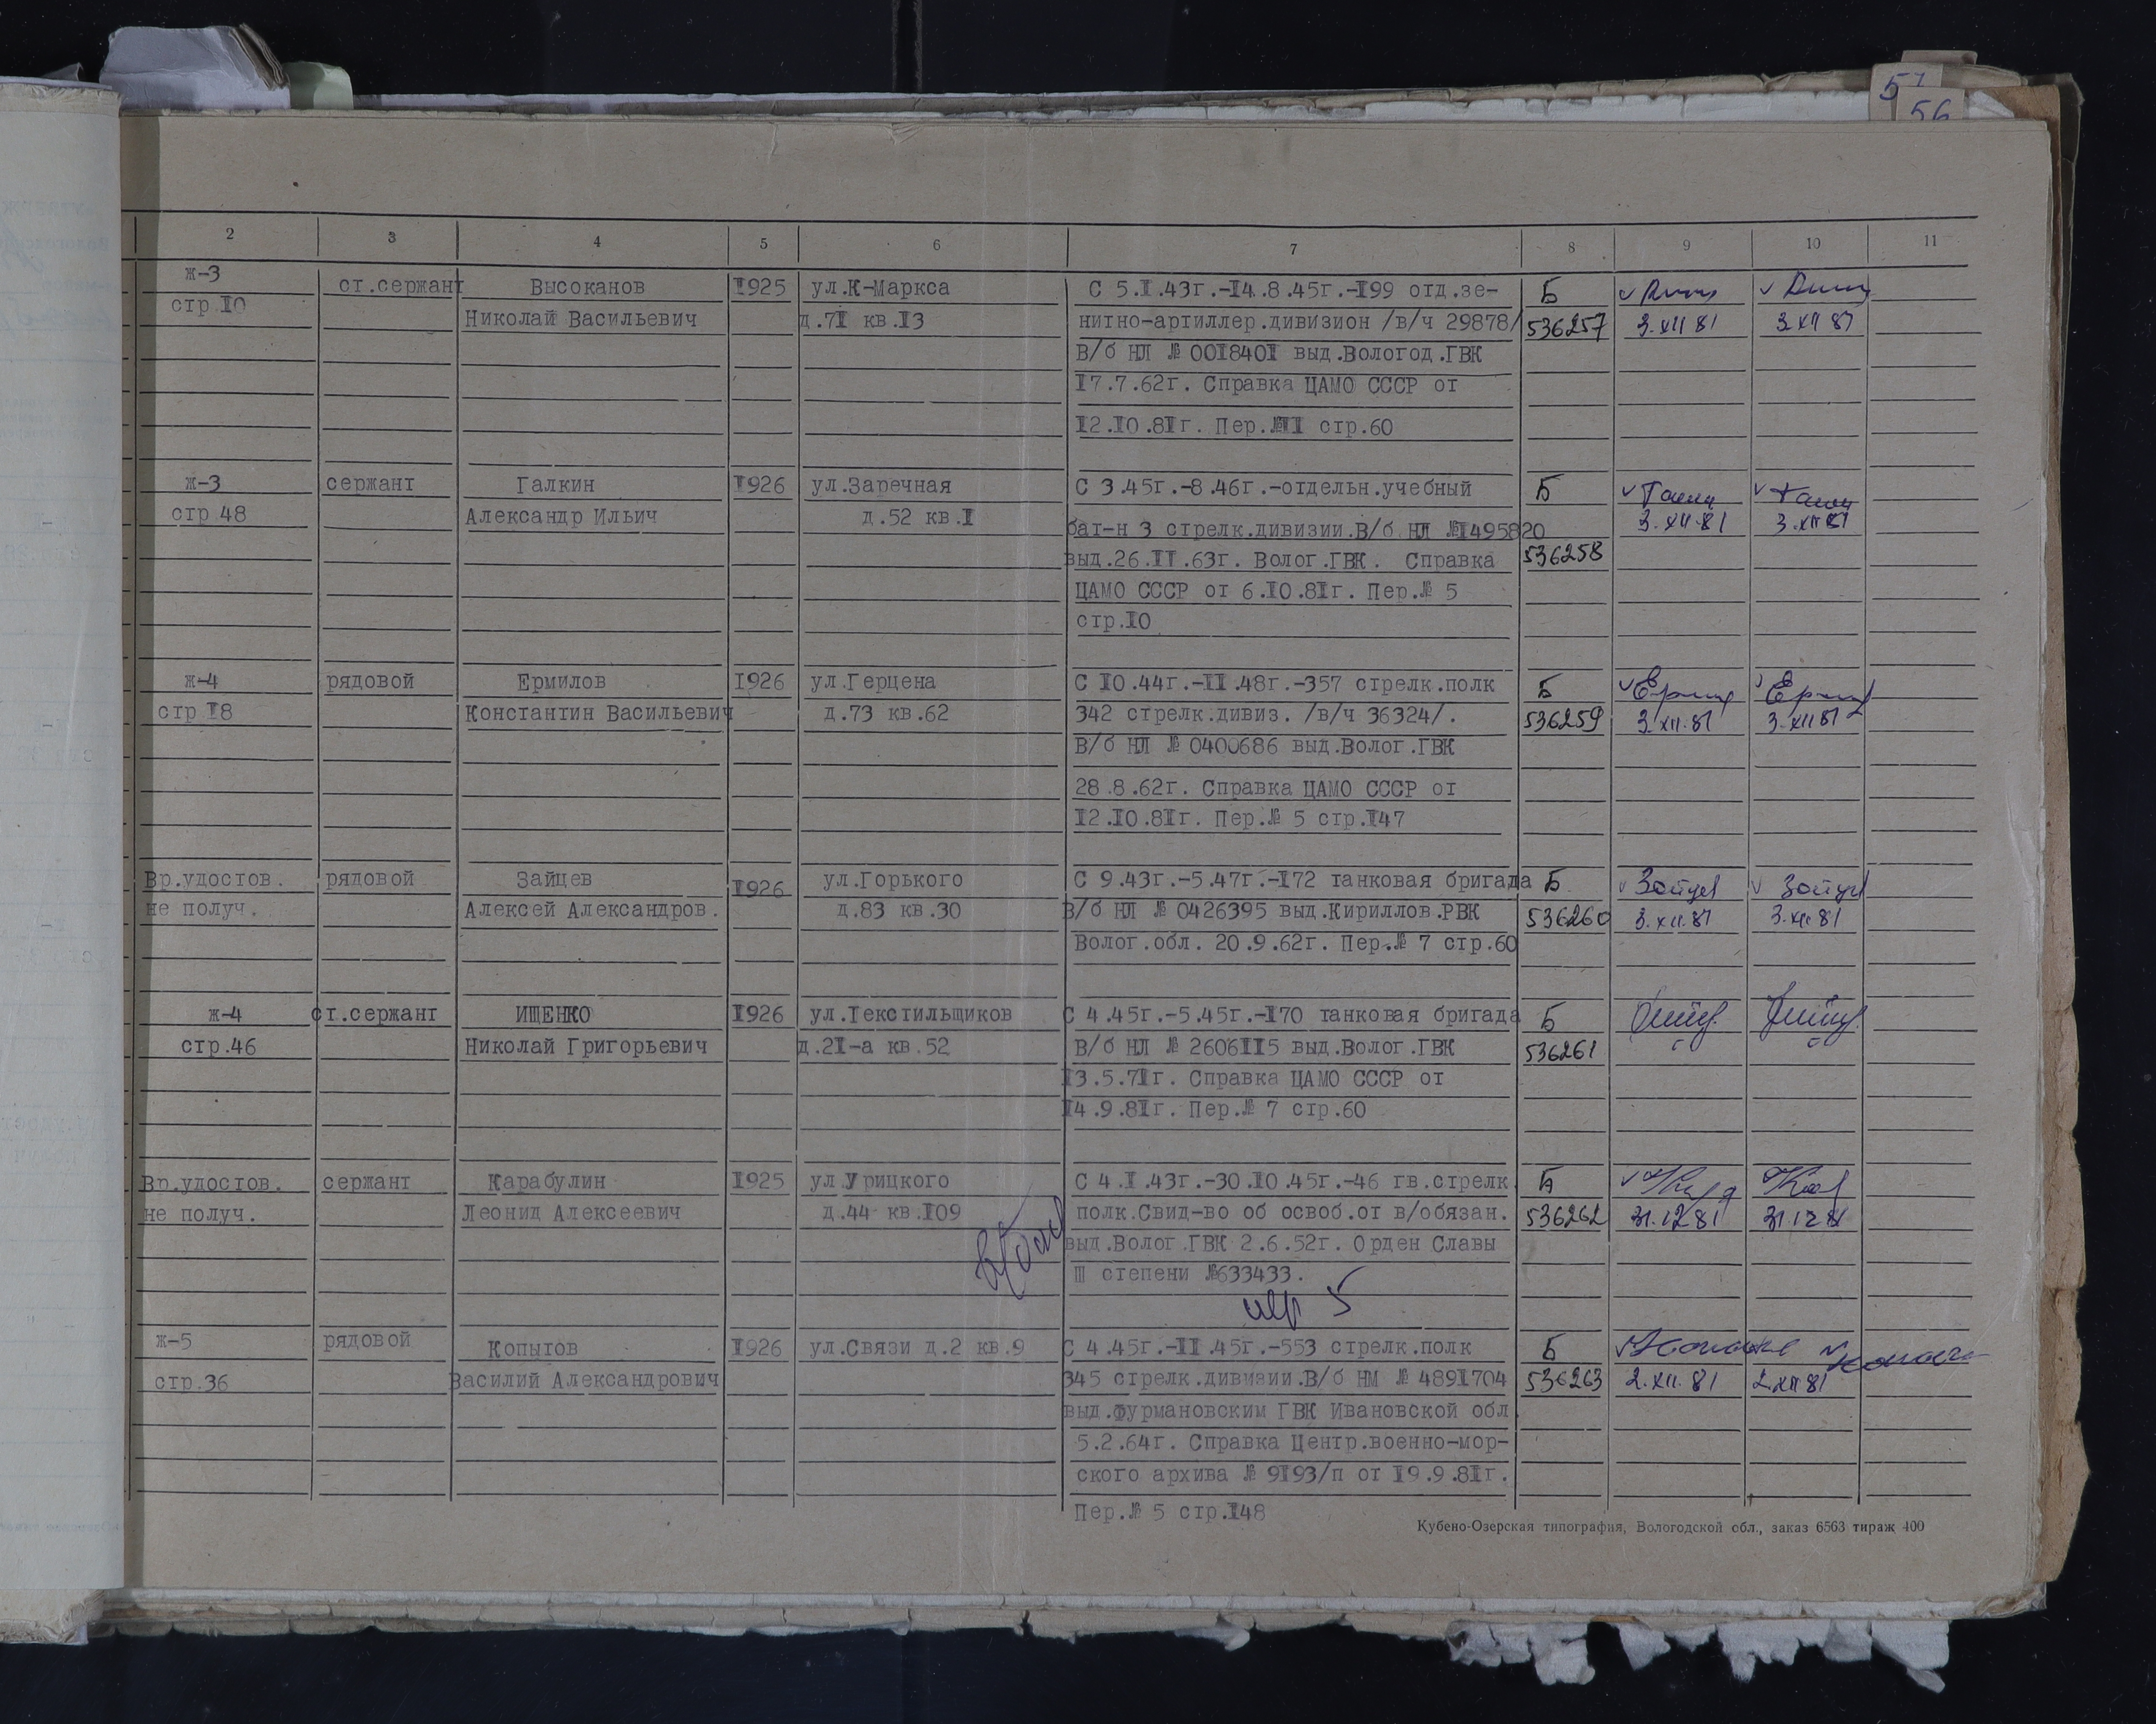 56
2 3 4 5 6 7 8 9 10 11
ж-3 ст.сержант Высоканов I925 ул.К-Маркса С 5.I.43г.-I4.8.45г.-I99 отд.зе- Б
стр.I0 Николай Васильевич д.7I кв.I3 нитно-артиллер.дивизион /в/ч 29878/ 536257 3.XII 81 3.XII 81
В/б НЛ № 00I840I выд.Вологод.ГВК
I7.7.62г. Справка ЦАМО СССР от
I2.I0.8Iг. Пер.№II стр.60
ж-3 сержант Галкин I926 ул.Заречная С 3.45г.-8.46г.-отдельн.учебный Б
стр 48 Александр Ильич д.52 кв.I бат-н 3 стрелк.дивизии.В/б НЛ №I495820 3.XII.81 3.XII 81
выд.26.II.63г. Волог.ГВК. Справка 536258
ЦАМО СССР от 6.I0.8Iг. Пер.№ 5
стр.I0
ж-4 рядовой Ермилов I926 ул.Герцена С I0.44г.-II.48г.-357 стрелк.полк Б
стр I8 Константин Васильевич д.73 кв.62 342 стрелк.дивиз. /в/ч 36324/. 536259 3.XII.81 3.XII 81
В/б НЛ № 0400686 выд.Волог.ГВК
28.8.62г. Справка ЦАМО СССР от
I2.I0.8Iг. Пер.№ 5 стр.I47
Вр.удостов. рядовой Зайцев I926 ул.Горького С 9.43г.-5.47г.-I72 танковая бригада Б
не получ. Алексей Александров. д.83 кв.30 В/б НЛ № 0426395 выд.Кириллов.РВК 536260 3.XII.81 3.XII 81
Волог.обл. 20.9.62г. Пер.№ 7 стр.60
ж-4 ст.сержант ИЩЕНКО I926 ул.Текстильщиков С 4.45г.-5.45г.-I70 танковая бригада Б
стр.46 Николай Григорьевич д.2I-а кв.52 В/б НЛ № 2606II5 выд.Волог.ГВК 536261
I3.5.7Iг. Справка ЦАМО СССР от
I4.9.8Iг. Пер.№ 7 стр.60
Вр.удостов. сержант Карабулин I925 ул.Урицкого С 4.I.43г.-30.I0.45г.-46 гв.стрелк. Б
не получ. Леонид Алексеевич д.44 кв.I09 полк.Свид-во об освоб.от в/обязан. 536262 31.12 81 31.12 81
выд.Волог.ГВК 2.6.52г. Орден Славы
III степени №633433.
ж-5 рядовой Копытов I926 ул.Связи д.2 кв.9 С 4.45г.-II.45г.-553 стрелк.полк Б
стр.36 Василий Александрович 345 стрелк.дивизии.В/б НМ № 489I704 536263 2.XII.81 2.XII 81
выд.Фурмановским ГВК Ивановской обл.
5.2.64г. Справка Центр.военно-мор-
ского архива № 9I93/п от I9.9.8Iг.
Пер.№ 5 стр.I48
Кубено-Озерская типография, Вологодской обл., заказ 6563 тираж 400